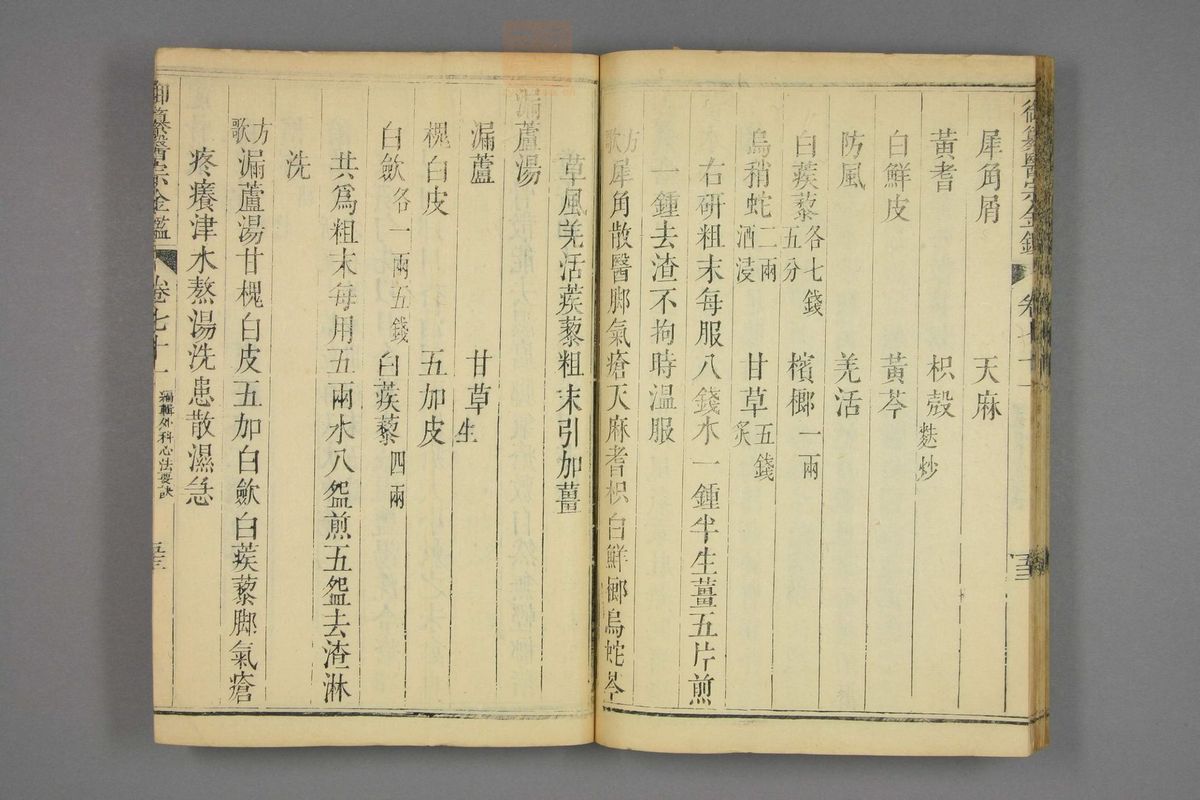 犀角屑 天麻
黃耆 枳殼麩炒
白鮮皮 黃芩
防風 羌活
白蒺藜各七錢五分 檳榔一兩
烏稍蛇二兩酒浸 甘草五錢炙
右研粗末每服八錢水一鍾半生薑五片煎
一鍾去渣不拘時温服
方歌犀角散醫脚氣瘡天麻耆枳白鮮榔烏蛇芩
草風羌活蒺藜粗末引加薑
漏蘆湯
漏蘆 甘草生
槐白皮 五加皮
白歛各一兩五錢 白蒺藜四兩
共爲粗末每用五兩水八盌煎五盌去渣淋
洗
方歌漏蘆湯甘槐白皮五加白歛白蒺藜脚氣瘡
疼癢津水熬湯洗患散濕急
御纂醫宗金鑑 卷七十一 編輯外科心法要訣 五三